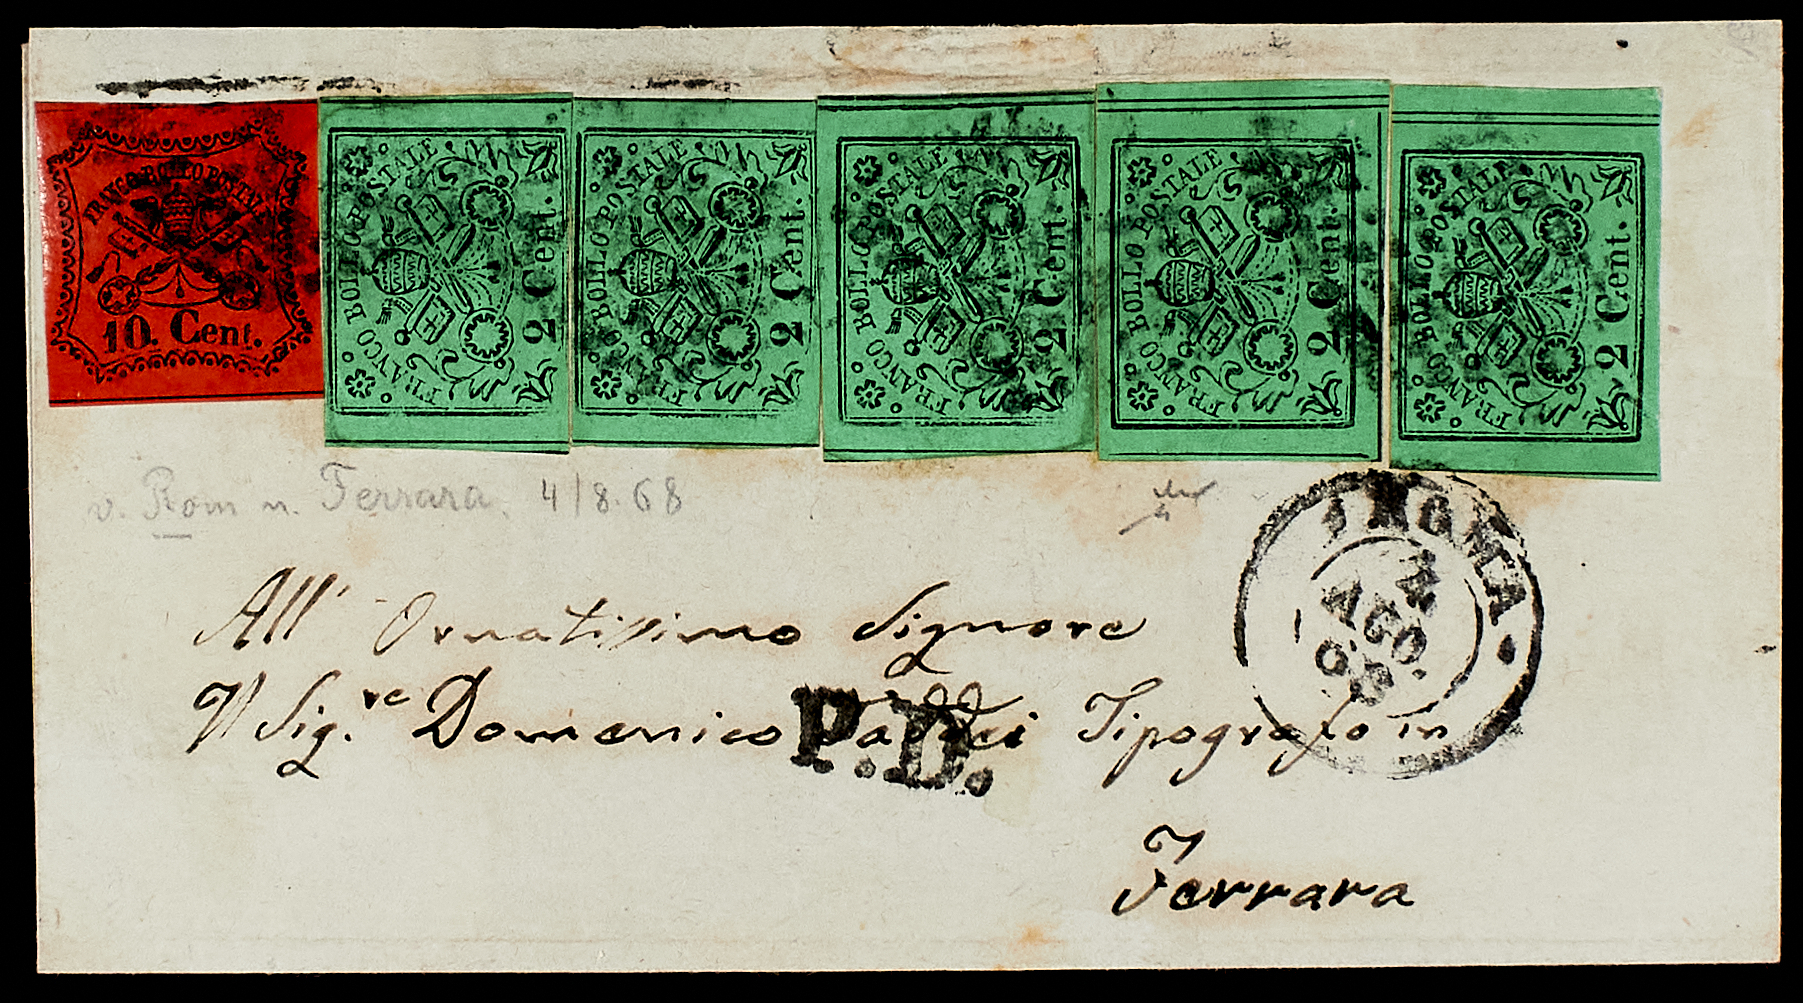 FRANCO BOLLO POSTALE
10. Cent.
FRANCO BOLLO POSTALE
2 Cent.
FRANCO BOLLO POSTALE
2 Cent.
FRANCO BOLLO POSTALE
2 Cent.
FRANCO BOLLO POSTALE
2 Cent.
FRANCO BOLLO POSTALE
2 Cent.
v. Rom n. Ferrara. 4/8.68
ROMA
4
AGO.
68
All' Ornatissimo Signore
Il Sig.re Domenico Taddei Tipografo in
P.D.
Ferrara